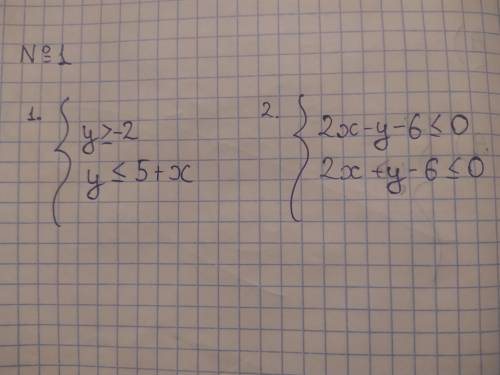 №1
1. { y ≥ -2
y ≤ 5 + x
2. { 2x - y - 6 ≤ 0
2x + y - 6 ≤ 0